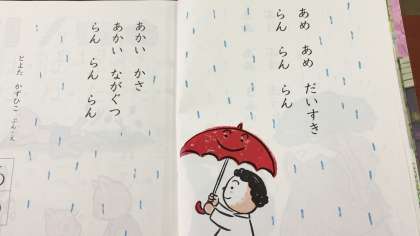 あめ　あめ　だいすき
らん　らん　らん
あかい　かさ
あかい　ながぐつ
らん　らん　らん
とよた　かずひこ　ぶん・え